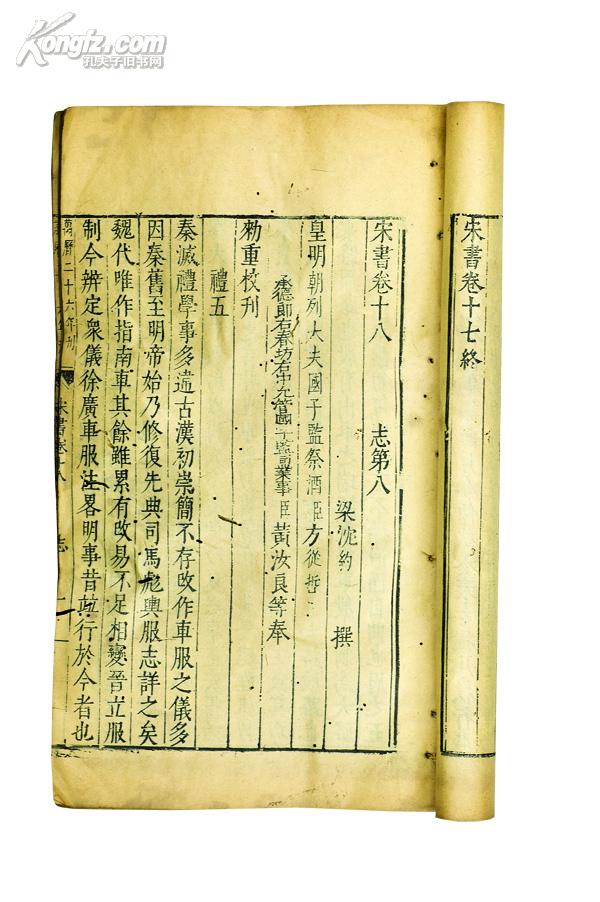 Kongfz.com
孔夫子旧书网
宋書卷十七終
宋書卷十八 志第八
梁沈約 撰
皇明朝列大夫國子監祭酒臣方從哲
承德郎右春坊右中允管國子監司業事臣黃汝良等奉
勑重校刊
禮五
秦滅禮學事多違古漢初崇簡不存改作車服之儀多
因秦舊至明帝始乃修復先典司馬彪輿服志詳之矣
魏代唯作指南車其餘雖累有改易不足相變晉立服
制令辨定衆儀徐廣車服注畧明事昔竝行於今者也
萬曆二十六年刊
宋書卷十八 志